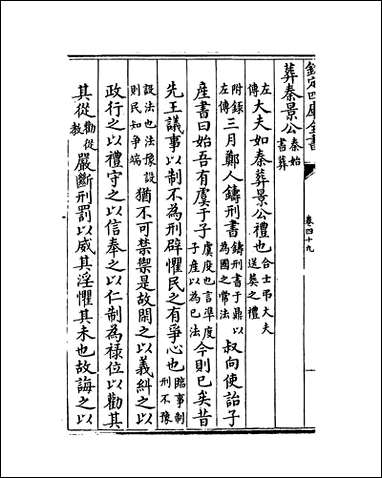 欽定四庫全書
卷四十九
葬秦景公秦始書葬
左傳大夫如秦葬景公禮也合士弔大夫送葬之禮
附錄左傳三月鄭人鑄刑書鑄刑書于鼎以為國之常法叔向使詒子
產書曰始吾有虞于子虞度也言準度子產以為已法今則已矣昔
先王議事以制不為刑辟懼民之有爭心也臨事制刑不豫
設法也法豫設則民知爭端猶不可禁禦是故閑之以義糾之以
政行之以禮守之以信奉之以仁制為祿位以勸其
其從勸從教嚴斷刑罰以威其淫懼其未也故誨之以